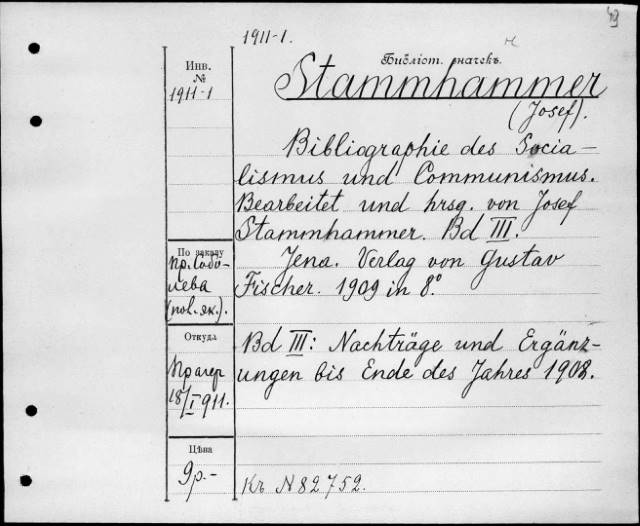 49
1911-1.
Инв.
№
1911-1
Библіот. значекъ.
Stammhammer
(Josef).
Bibliographie des Socia-
lismus und Communismus.
Bearbeitet und hrsg. von Josef
Stammhammer. Bd III.
Jena. Verlag von Gustav
Fischer. 1909 in 8º.
По заказу
пр. Собо-
лева
(pol. эк.).
Bd III: Nachträge und Ergänz-
ungen bis Ende des Jahres 1908.
Откуда
Прагер
18/I 911.
Цѣна
9р.-
Къ N 82752.